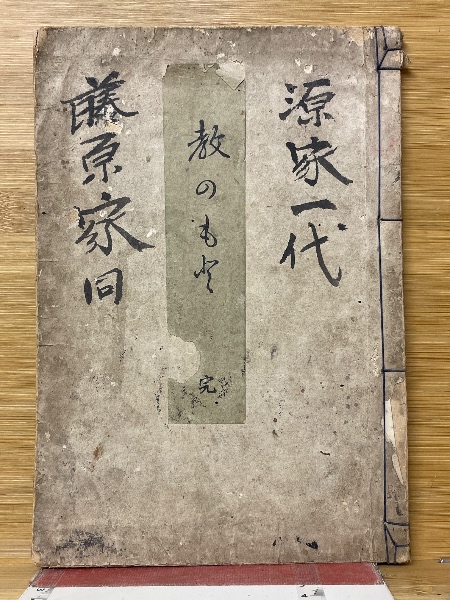 源家一代
教のもと
完
藤原家同